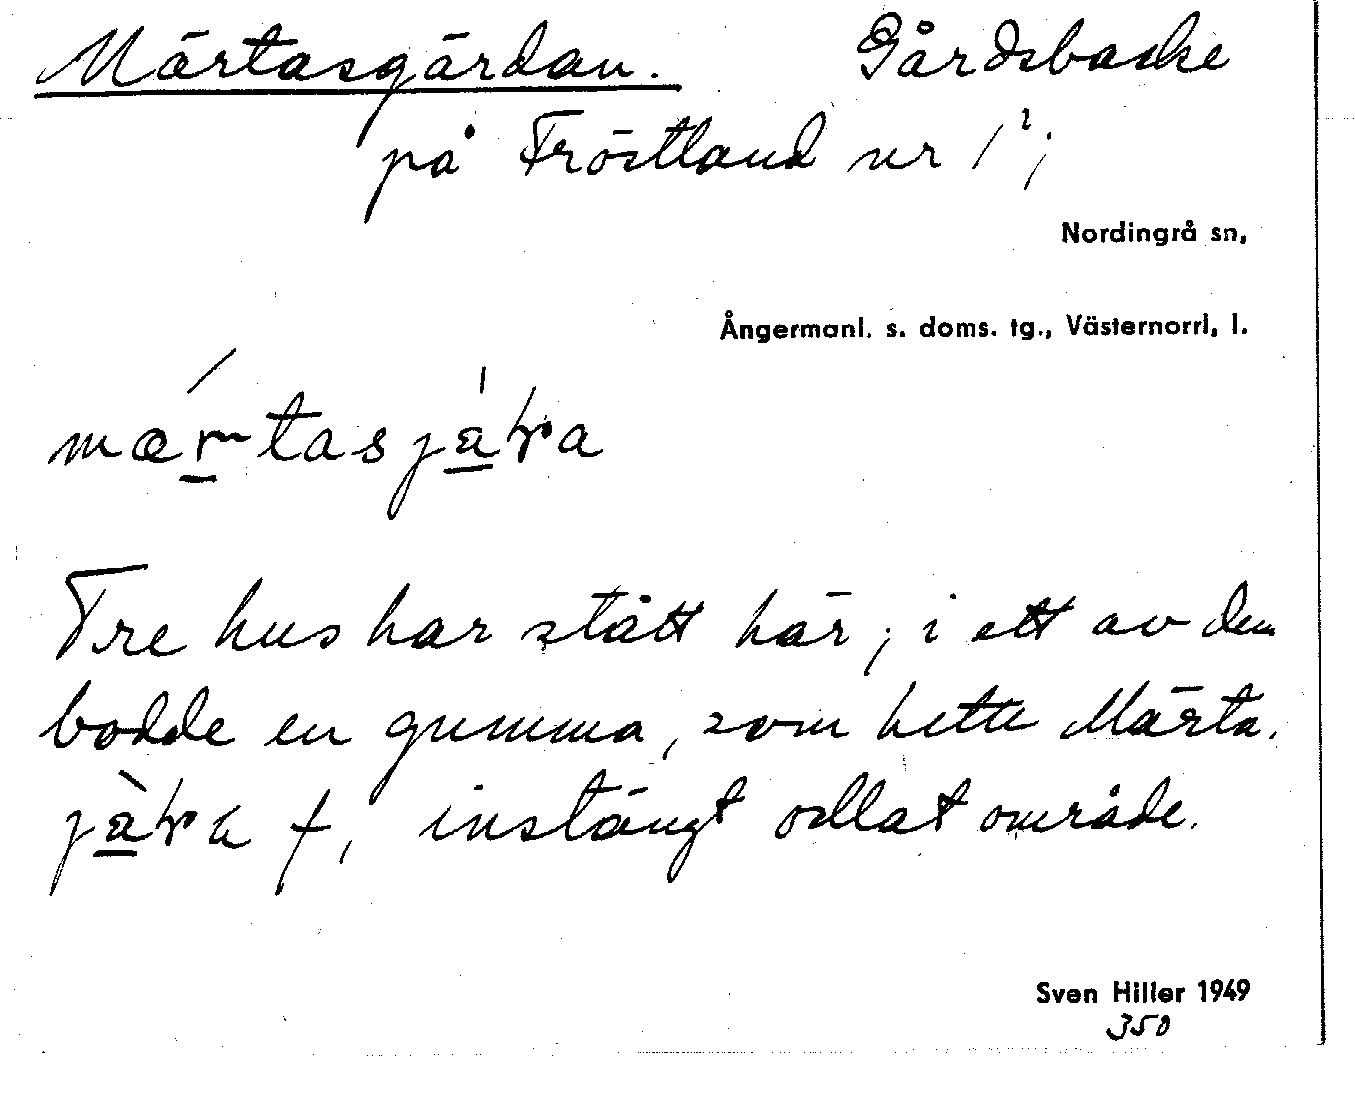 Märtasgärdan. Gårdsbacke
på Fröstland nr 1²;
Nordingrå sn,
Ångermanl. s. doms. tg., Västernorrl. l.
Tre hus har stått här; i ett av dem
bodde en gumma, som hette Märta.
f, instängt odlat område.
Sven Hiller 1949
350